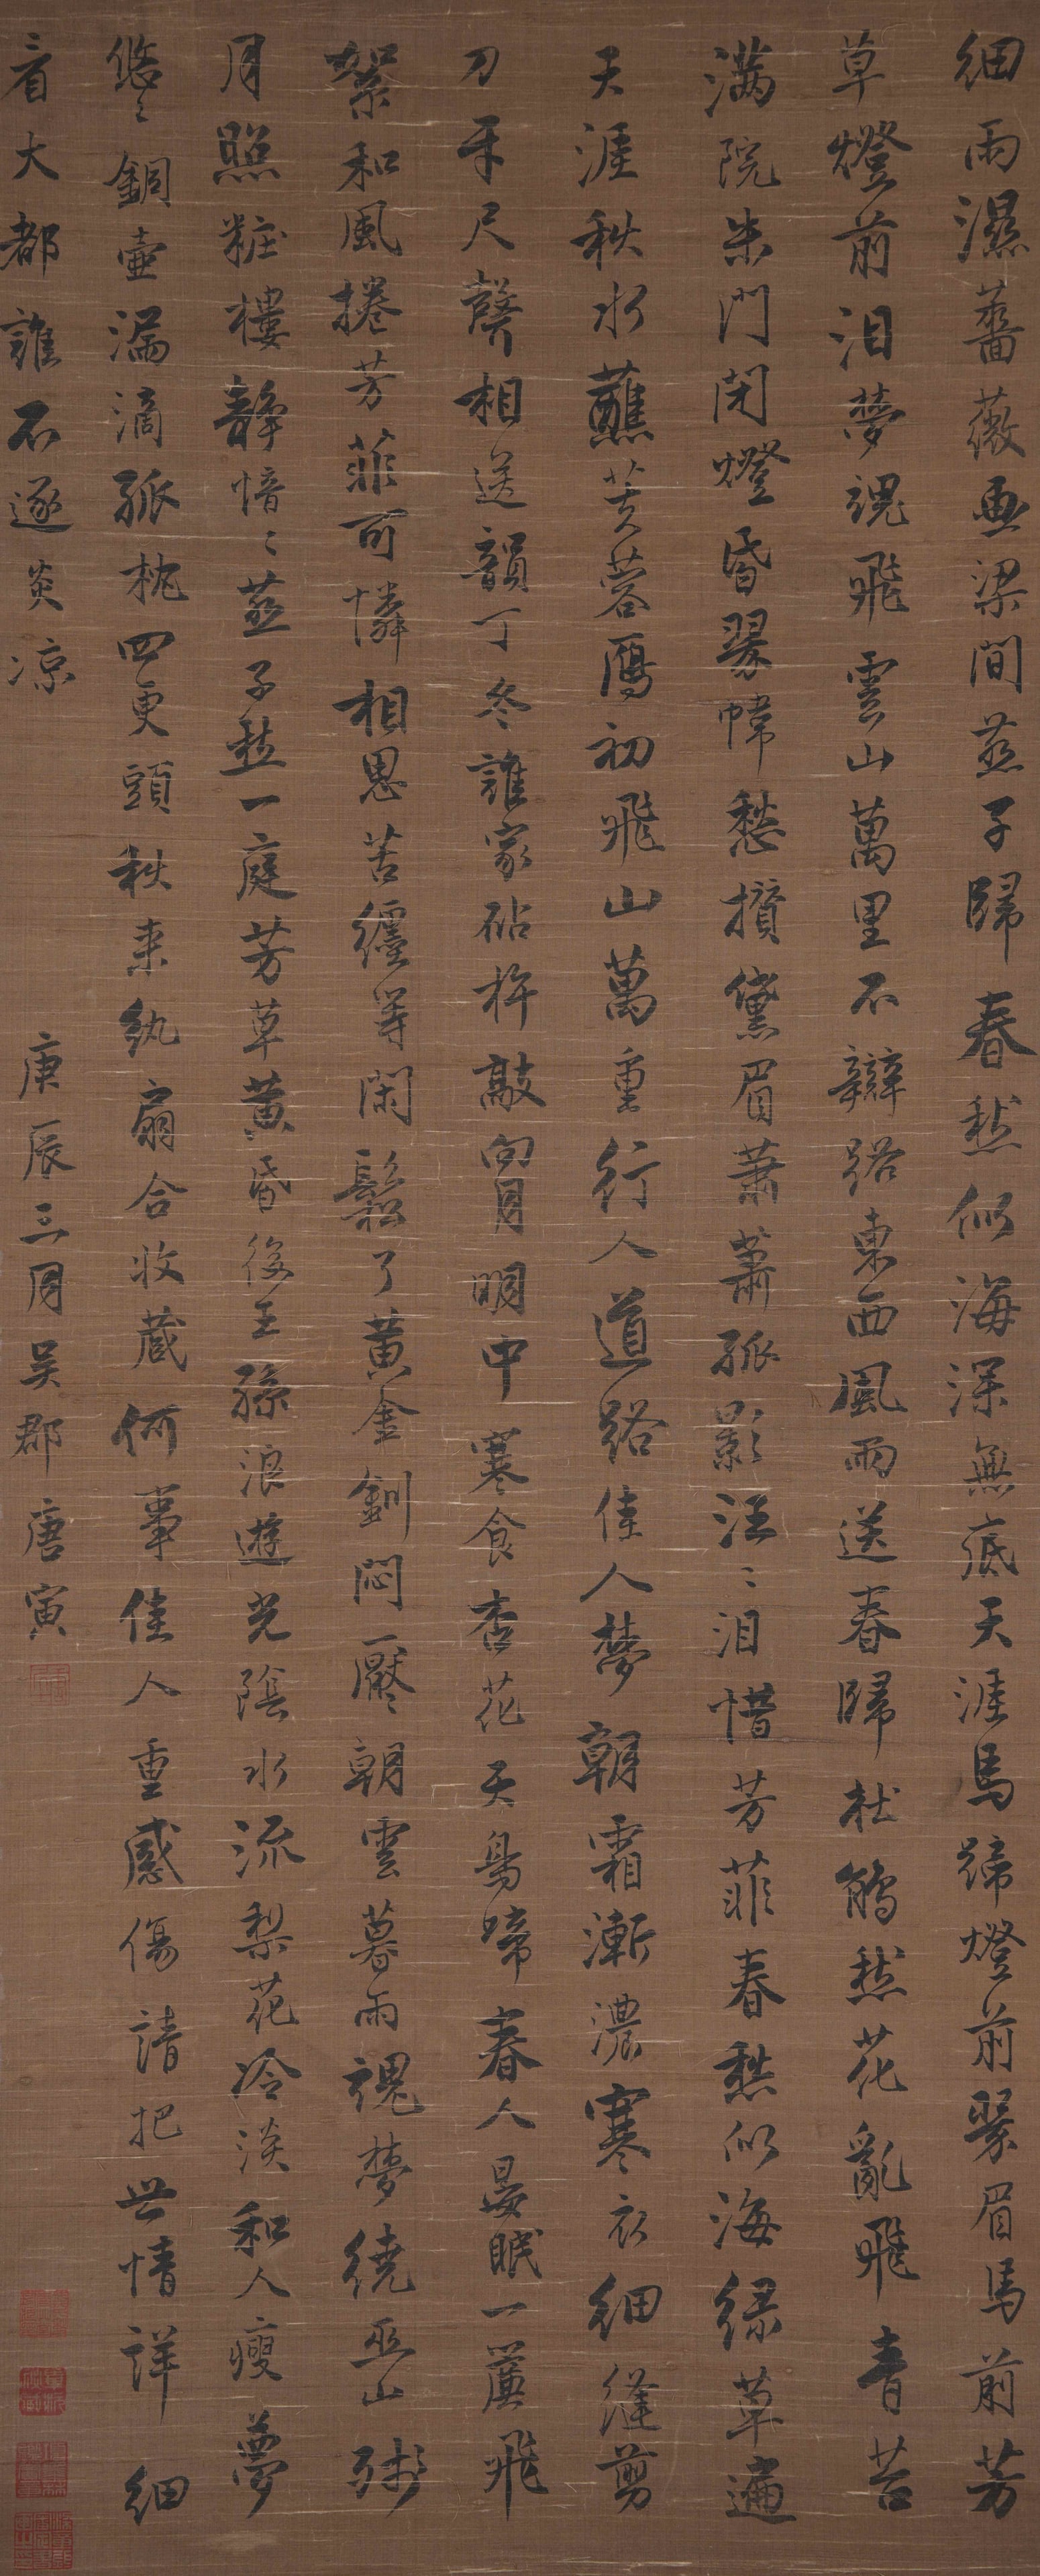 細雨濕薔薇畫梁間燕子歸春愁似海深無底天涯馬蹄燈前翠眉馬前芳
草燈前淚夢魂飛雲山萬里不辯路東西風雨送春歸杜鵑愁花亂飛青苔
滿院朱門閉燈昏翠幃愁攢黛眉蕭蕭孤影汪〻淚惜芳菲春愁似海綠草遍
天涯秋水蘸芙蓉鴈初飛山萬重行人道路佳人夢朝霜漸濃寒衣細縫剪
刀牙尺聲相送韻丁冬誰家砧杵敲向月明中寒食杏花天鳥啼春人晏眠一簾飛
絮和風捲芳菲可憐相思苦纏等閑鬆了黃金釧悶厭厭朝雲暮雨魂夢繞巫山殘
月照粧樓靜愔〻燕子愁一庭芳草黃昏後王孫浪遊光陰水流梨花冷淡和人瘦夢
悠〻銅壺漏滴孤枕四更頭秋來紈扇合收藏何事佳人重感傷請把世情詳細
看大都誰不逐炎涼
庚辰三月吳郡唐寅